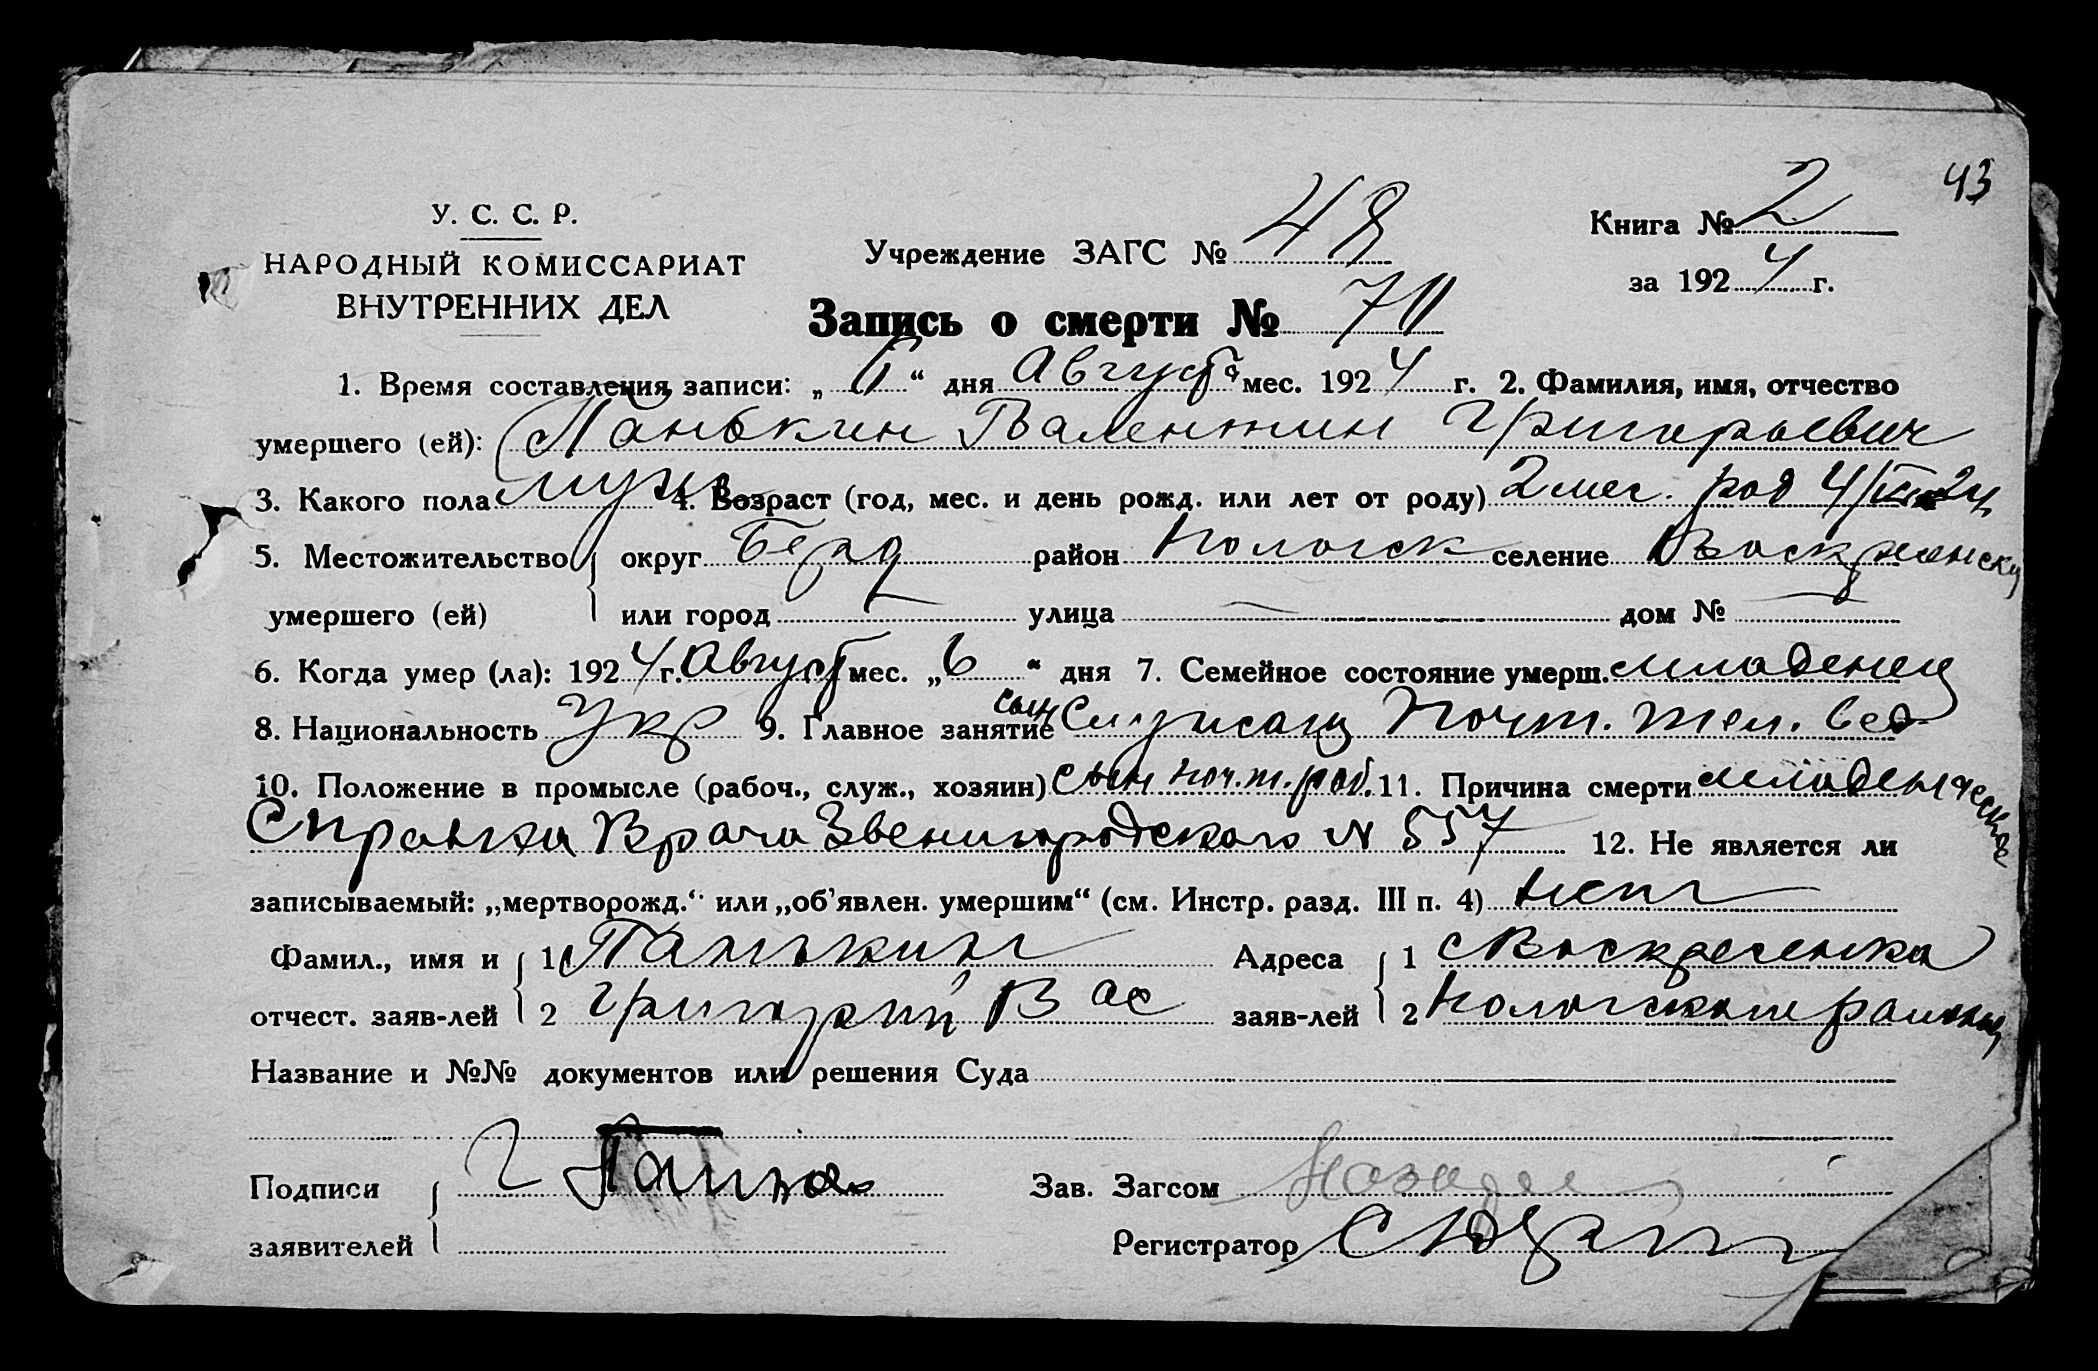 43
У. С. С. Р.
НАРОДНЫЙ КОМИССАРИАТ
ВНУТРЕННИХ ДЕЛ
Учреждение ЗАГС № 48
Книга № 2
за 1924 г.
Запись о смерти №
1. Время составления записи: „ “ дня Августа мес. 1924 г. 2. Фамилия, имя, отчество
умершего (ей): Панькин Валентин Григорьевич
3. Какого пола муж 4. Возраст (год, мес. и день рожд. или лет от роду) 2 мес. род 4/
5. Местожительство округ Берд район Пологск селение
умершего (ей) или город — улица — дом № —
6. Когда умер (ла): 1924 г. Август мес. „6“ дня 7. Семейное состояние умерш. младенец
8. Национальность Укр 9. Главное занятие сын Служащ Почт. тел. вед
10. Положение в промысле (рабоч., служ., хозяин) сын поч. т. раб. 11. Причина смерти младенческое
Справка Врача Звенигородского N 557 12. Не является ли
записываемый: „мертворожд.“ или „об’явлен. умершим“ (см. Инстр. разд. III п. 4) нет
Фамил., имя и 1 Панькин Адреса 1 с Воскресенка
отчест. заяв-лей 2 Григорий Вас заяв-лей 2 Пологского района
Название и №№ документов или решения Суда
Подписи Г Зав. Загсом
заявителей Регистратор